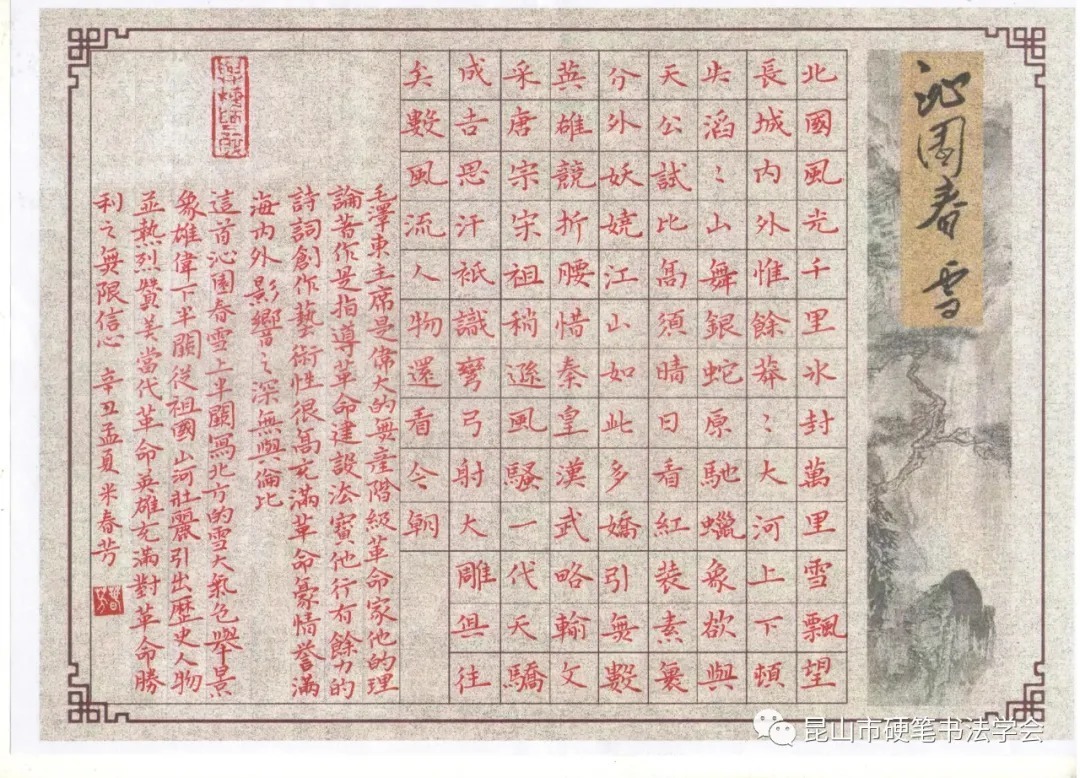 沁園春 雪
北國風光千里冰封萬里雪飄望
長城內外惟餘莽〻大河上下頓
失滔〻山舞銀蛇原馳蠟象欲與
天公試比高須晴日看紅裝素裹
分外妖嬈江山如此多嬌引無數
英雄競折腰惜秦皇漢武略輸文
采唐宗宋祖稍遜風騷一代天驕
成吉思汗祇識彎弓射大雕俱往
矣數風流人物還看今朝
毛澤東主席是偉大的無產階級革命家他的理
論著作是指導革命建設法寶他行有餘力的
詩詞創作藝術性很高充滿革命豪情譽滿
海內外影響之深無與倫比
這首沁園春雪上半闋寫北方的雪大氣包舉景
象雄偉下半闋從祖國山河壯麗引出歷史人物
並熱烈贊美當代革命英雄充滿對革命勝
利之無限信心 辛丑孟夏米春芳
昆山市硬笔书法学会